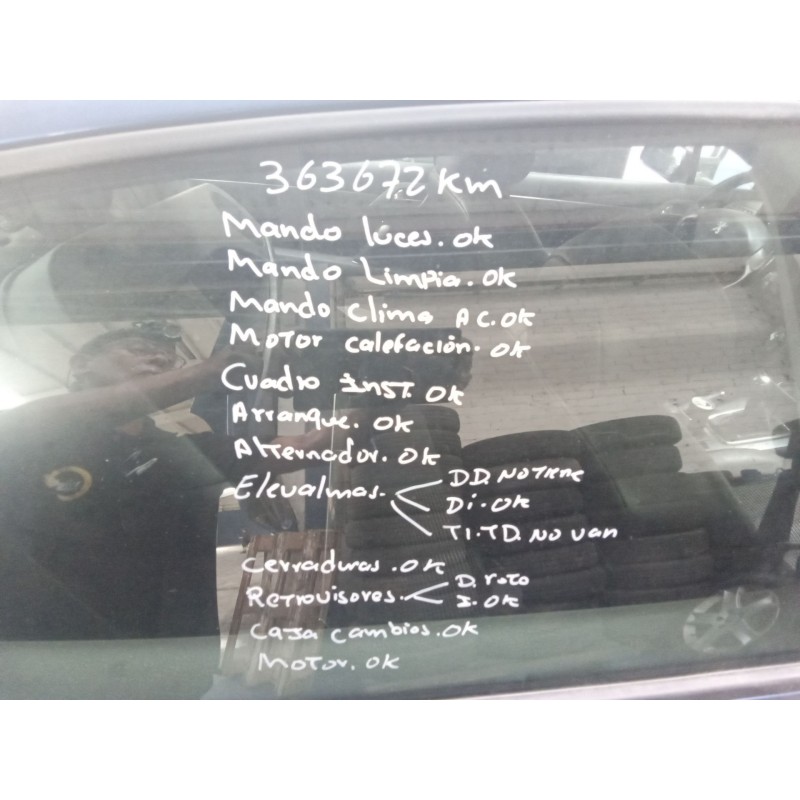 363672 km
Mando luces. ok
Mando Limpia. ok
Mando clima AC. ok
Motor calefación. ok
Cuadro inst. ok
Arranque. ok
Alternador. ok
Elevalunas. DD. NO TIENE
Di. ok
TI. TD. NO van
Cerraduras. ok
Retrovisores. D. roto
I. ok
Caja cambios. ok
Motor. ok